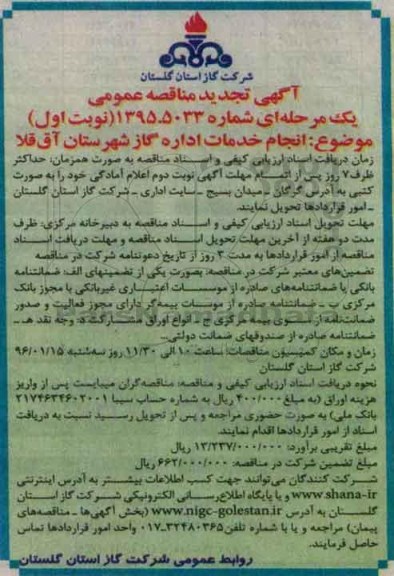 شرکت گاز استان گلستان
آگهی تجدید مناقصه عمومی
یک مرحله‌ای شماره ۱۳۹۵.۵۰۳۳ (نوبت اول)
موضوع: انجام خدمات اداره گاز شهرستان آق قلا
زمان دریافت اسناد ارزیابی کیفی و اسناد مناقصه به صورت همزمان: حداکثر
ظرف ۷ روز پس از اتمام مهلت آگهی نوبت دوم اعلام آمادگی خود را به صورت
کتبی به آدرس گرگان ـ میدان بسیج ـ سایت اداری ـ شرکت گاز استان گلستان
ـ امور قراردادها تحویل نمایند.
مهلت تحویل اسناد ارزیابی کیفی و اسناد مناقصه به دبیرخانه مرکزی: ظرف
مدت دو هفته از آخرین مهلت تحویل اسناد مناقصه و مهلت دریافت اسناد
مناقصه از امور قراردادها به مدت ۳ روز از تاریخ دعوتنامه شرکت در مناقصه
تضمین‌های معتبر شرکت در مناقصه: بصورت یکی از تضمینهای الف: ضمانتنامه
بانکی یا ضمانتنامه‌های صادره از موسسات اعتباری غیربانکی با مجوز بانک
مرکزی ب ـ ضمانتنامه صادره از موسسات بیمه‌گر دارای مجوز فعالیت و صدور
ضمانت‌نامه از سوی بیمه مرکزی ج ـ انواع اوراق مشارکت د: وجه نقد هـ ـ
ضمانتنامه صادره از صندوقهای ضمانت دولتی ـ
زمان و مکان کمیسیون مناقصات: ساعت ۱۰ الی ۱۱/۳۰ روز سه‌شنبه ۹۶/۰۱/۱۵
شرکت گاز استان گلستان
نحوه دریافت اسناد ارزیابی کیفی و مناقصه: مناقصه‌گران میبایست پس از واریز
هزینه اوراق (به مبلغ ۴۰۰/۰۰۰ ریال به شماره حساب سیبا ۲۱۷۴۶۳۴۶۰۲۰۰۱
بانک ملی) به صورت حضوری مراجعه و پس از تحویل رسید نسبت به دریافت
اسناد از امور قراردادها اقدام نمایند.
مبلغ تقریبی برآورد: ۱۳/۲۳۷/۰۰۰/۰۰۰ ریال
مبلغ تضمین شرکت در مناقصه: ۶۶۲/۰۰۰/۰۰۰ ریال
شرکت کنندگان می‌توانند جهت کسب اطلاعات بیشتر به آدرس اینترنتی
www.shana-ir و یا پایگاه اطلاع‌رسانی الکترونیکی شرکت گاز استان
گلستان به آدرس www.nigc-golestan.ir (بخش آگهی‌ها ـ مناقصه‌های
پیمان) مراجعه و یا با شماره تلفن ۳۲۴۸۰۳۶۵-۰۱۷ واحد امور قراردادها تماس
حاصل فرمایند.
روابط عمومی شرکت گاز استان گلستان